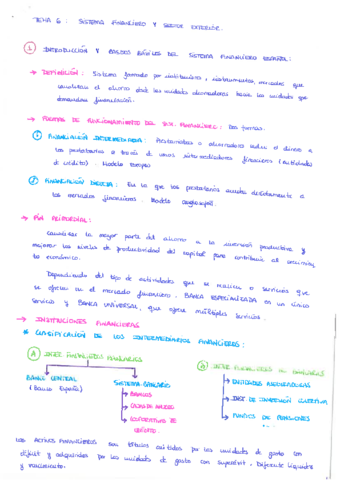 TEMA 6: SISTEMA FINANCIERO Y SECTOR EXTERIOR.
① INTRODUCCIÓN Y RASGOS BÁSICOS DEL SISTEMA FINANCIERO ESPAÑOL:
→ DEFINICIÓN: Sistema formado por instituciones, instrumentos, mercados que
canalizan el ahorro desde las unidades ahorradoras hacia las unidades que
demandan financiación.
→ FORMAS DE FUNCIONAMIENTO DEL SIS. FINANCIERO: Dos formas.
① FINANCIACIÓN INTERMEDIADA: Prestamistas o ahorradores ceden el dinero a
los prestatarios a través de unos intermediarios financieros (entidades
de crédito). Modelo europeo
② FINANCIACIÓN DIRECTA: En la que los prestatarios acuden directamente a
los mercados financieros. Modelo anglosajón.
→ FIN PRIMORDIAL:
Canalizar la mayor parte del ahorro a la inversión productiva y
mejorar los niveles de productividad del capital para contribuir al crecimiento
económico.
Dependiendo del tipo de actividades que se realice o servicios que
se ofrezca en el mercado financiero. BANCA ESPECIALIZADA en un único
servicio y BANCA UNIVERSAL, que ofrece múltiples servicios.
→ INSTITUCIONES FINANCIERAS
CLASIFICACIÓN DE LOS INTERMEDIARIOS FINANCIEROS:
Ⓐ INTER FINANCIEROS BANCARIOS
BANCO CENTRAL
(Banco España)
SISTEMA BANCARIO
→ BANCOS
→ CAJAS DE AHORRO
→ COOPERATIVAS DE
CRÉDITO
Ⓑ INTER FINANCIEROS NO BANCARIOS
→ ENTIDADES ASEGURADORAS
→ INST. DE INVERSIÓN COLECTIVA
→ FONDOS DE PENSIONES
Los activos financieros son títulos emitidos por las unidades de gasto con
déficit y adquiridos por las unidades de gasto con superávit. Diferente liquidez
y vencimiento.